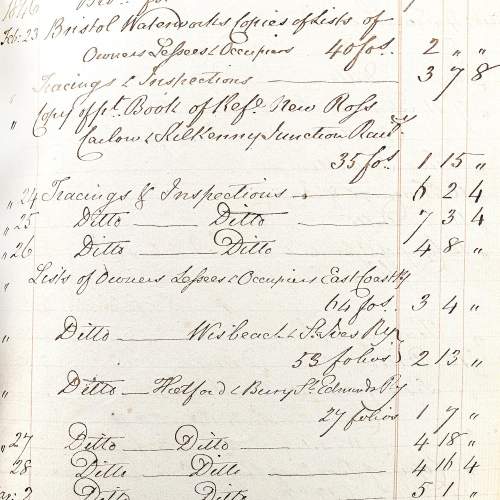 1846
Feb. 23 Bristol Waterworks Copies of Lists of
Owners Lessees & Occupiers 40 fos. 2 " "
Tracings & Inspections 3 7 8
" Copy of pt. Book of Refe. New Ross
Carlow & Kilkenny Junction Railwy
35 fos. 1 15 "
" 24 Tracings & Inspections 6 2 4
" 25 Ditto Ditto 7 3 4
" 26 Ditto Ditto 4 8 "
" Lists of Owners Lessees & Occupiers East Coast Ry
64 fos. 3 4 "
" Ditto Wisbeach & St. Ives Ry
53 folios 2 13 "
" Ditto Thetford & Bury St. Edmunds Ry
27 folios 1 7 "
" 27 Ditto Ditto 4 18 "
" 28 Ditto Ditto 4 16 4
Mar: 2 Ditto Ditto 5 1 "